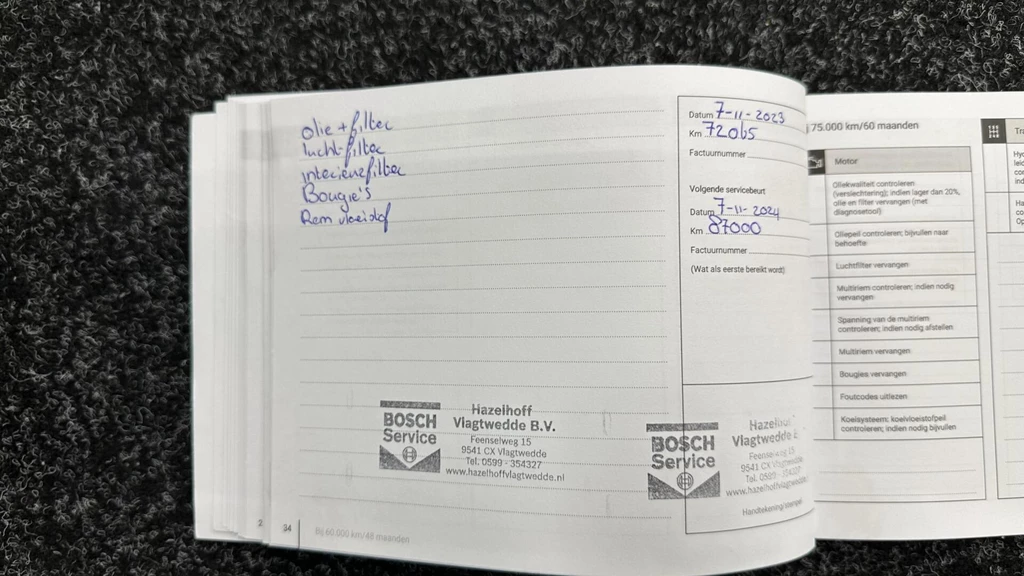 olie + filter
lucht-filter
interieurfilter
Bougie's
Rem vloeistof
Datum 7-11-2023
Km 72065
Factuurnummer
Volgende servicebeurt
Datum 7-11-2024
Km 87000
Factuurnummer
(Wat als eerste bereikt word)
BOSCH
Service
Hazelhoff
Vlagtwedde B.V.
Feenselweg 15
9541 CX Vlagtwedde
Tel. 0599 - 354327
www.hazelhoffvlagtwedde.nl
BOSCH
Service
Vlagtwedde
Feenselweg 15
9541 CX
Tel. 0599 - 354327
www.hazelhoffvlagtwedde
Handtekening/stempel
2
34
Bij 60.000 km/48 maanden
75.000 km/60 maanden
Motor
Oliekwaliteit controleren
(verslechtering); indien lager dan 20%,
olie en filter vervangen (met
diagnosetool)
Oliepeil controleren; bijvullen naar
behoefte
Luchtfilter vervangen
Multiriem controleren; indien nodig
vervangen
Spanning van de multiriem
controleren; indien nodig afstellen
Multiriem vervangen
Bougies vervangen
Foutcodes uitlezen
Koelsysteem: koelvloeistofpeil
controleren; indien nodig bijvullen